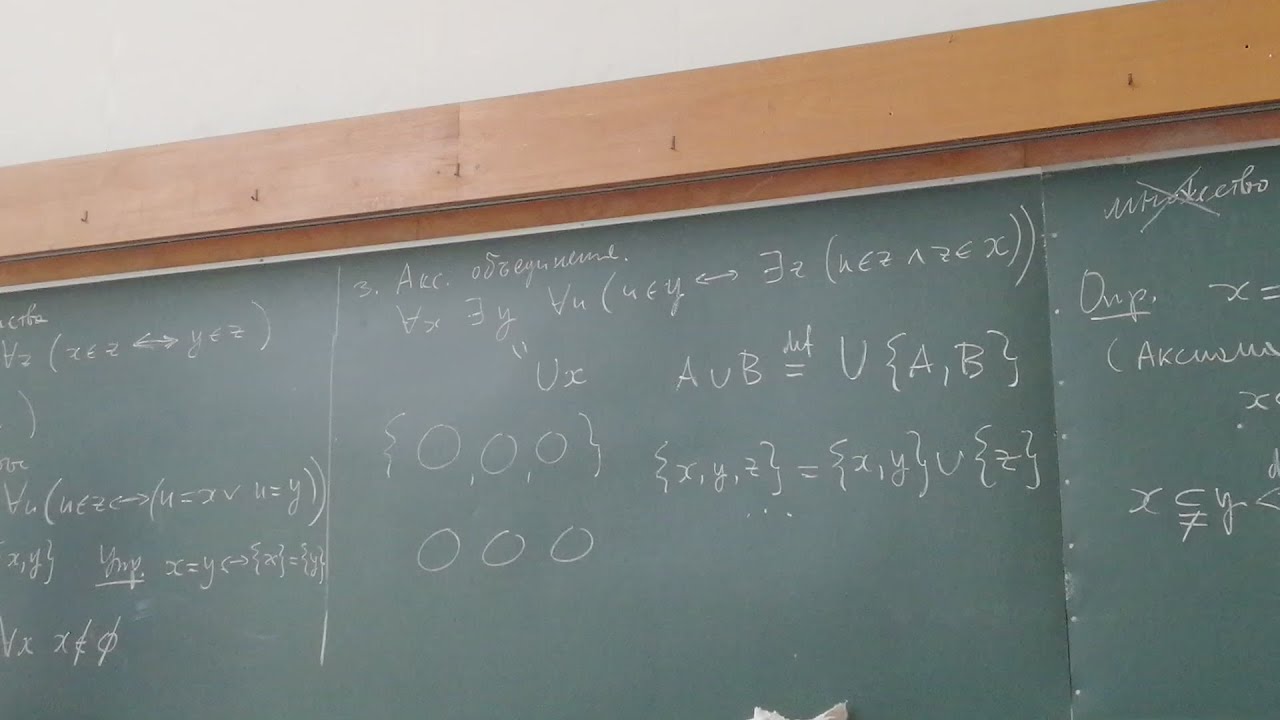 ∀z (x∈z ↔ y∈z)
)
∀u(u∈z↔(u=x ∨ u=y))
{x,y} Упр. x=y↔{x}={y}
∀x x∉∅
3. Акс. объединения.
∀x ∃y ∀u (u∈y ↔ ∃z (u∈z ∧ z∈x))
∪x A∪B def= ∪{A,B}
{○, ○, ○} {x,y,z} = {x,y}∪{z}
...
○ ○ ○
множество
Опр. x=
(Аксиома
x
x⊊y